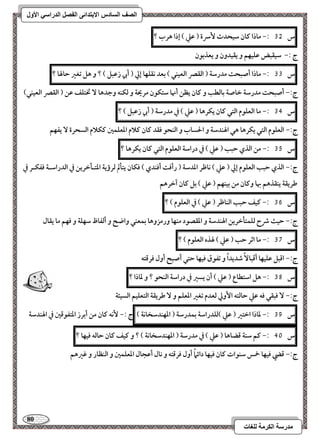 الصف السادس الابتدائى الفصل الدراسي الأول
س 32 :- ماذا كان سيحدث لأسرة ( علي ) إذا هرب ؟
ج :- سيقبض عليهم و يقيدون و يعذبون
س 33 :- ماذا أصبحت مدرسة ( القصر العيني ) بعد نقلها إلي ( أبي زعبل ) ؟ و هل تغير حالها ؟
ج :- أصبحت مدرسة خاصة بالطب و كان يظن أنها ستكون مريحة و لكنه وجدها لا تختلف عن ( القصر العيني )
س 34 :- ما العلوم التي كان يكرهها ( علي ) في مدرسة ( أبي زعبل ) ؟
ج :- العلوم التي يكرهها هي الهندسة و الحساب و النحو فقد كان كلام المعلمين ككلام السحرة لا يفهم
س 35 :- من الذي حبب ( علي ) في دراسة العلوم التي كان يكرهها ؟
ج :- الذي حبب العلوم إلي ( علي ) ناظر المدسة ( رأفت أفندي ) فكان يتألم لرؤية المتأخرين في الدراسة ففكر في
طريقة ينقذهم بها وكان من بينهم ( علي ) بل كان آخرهم
س 36 :- كيف حبب الناظر ( علي ) في العلوم ؟
ج :- حيث شرح للمتأخرين الهندسة و المقصود منها ورموزها بمعني واضح و ألفاظ سهلة و فهم ما يقال
س 37 :- ما اثر حب ( علي ) لهذه العلوم ؟
ج :- اقبل عليها أقبالاً شديداً و تفوق فيها حتي أصبح أول فرقته
س 38 :- هل استطاع ( علي ) أن يسير في دراسة النحو ؟ و لماذا ؟
ج :- لا فبقي فه علي حالته الأولي لعدم تغير المعلم و لا طريقة التعليم السيئة
س 39 :- لماذا اختير ( علي )للدراسة بمدرسة ( المهندسخانة ) ج :- لأنه كان من أبرز المتفوقين في الهندسة
س 40 :- كم سنة قضاها ( علي ) في مدرسة ( المهندسخانة ) ؟ و كيف كان حاله فيها ؟
ج :- قضي فيها خمس سنوات كان فيها دائماً أول فرقته و نال أعجاب المعلمين و النظار و غيرهم
80
مدرسة الكرمة للغات